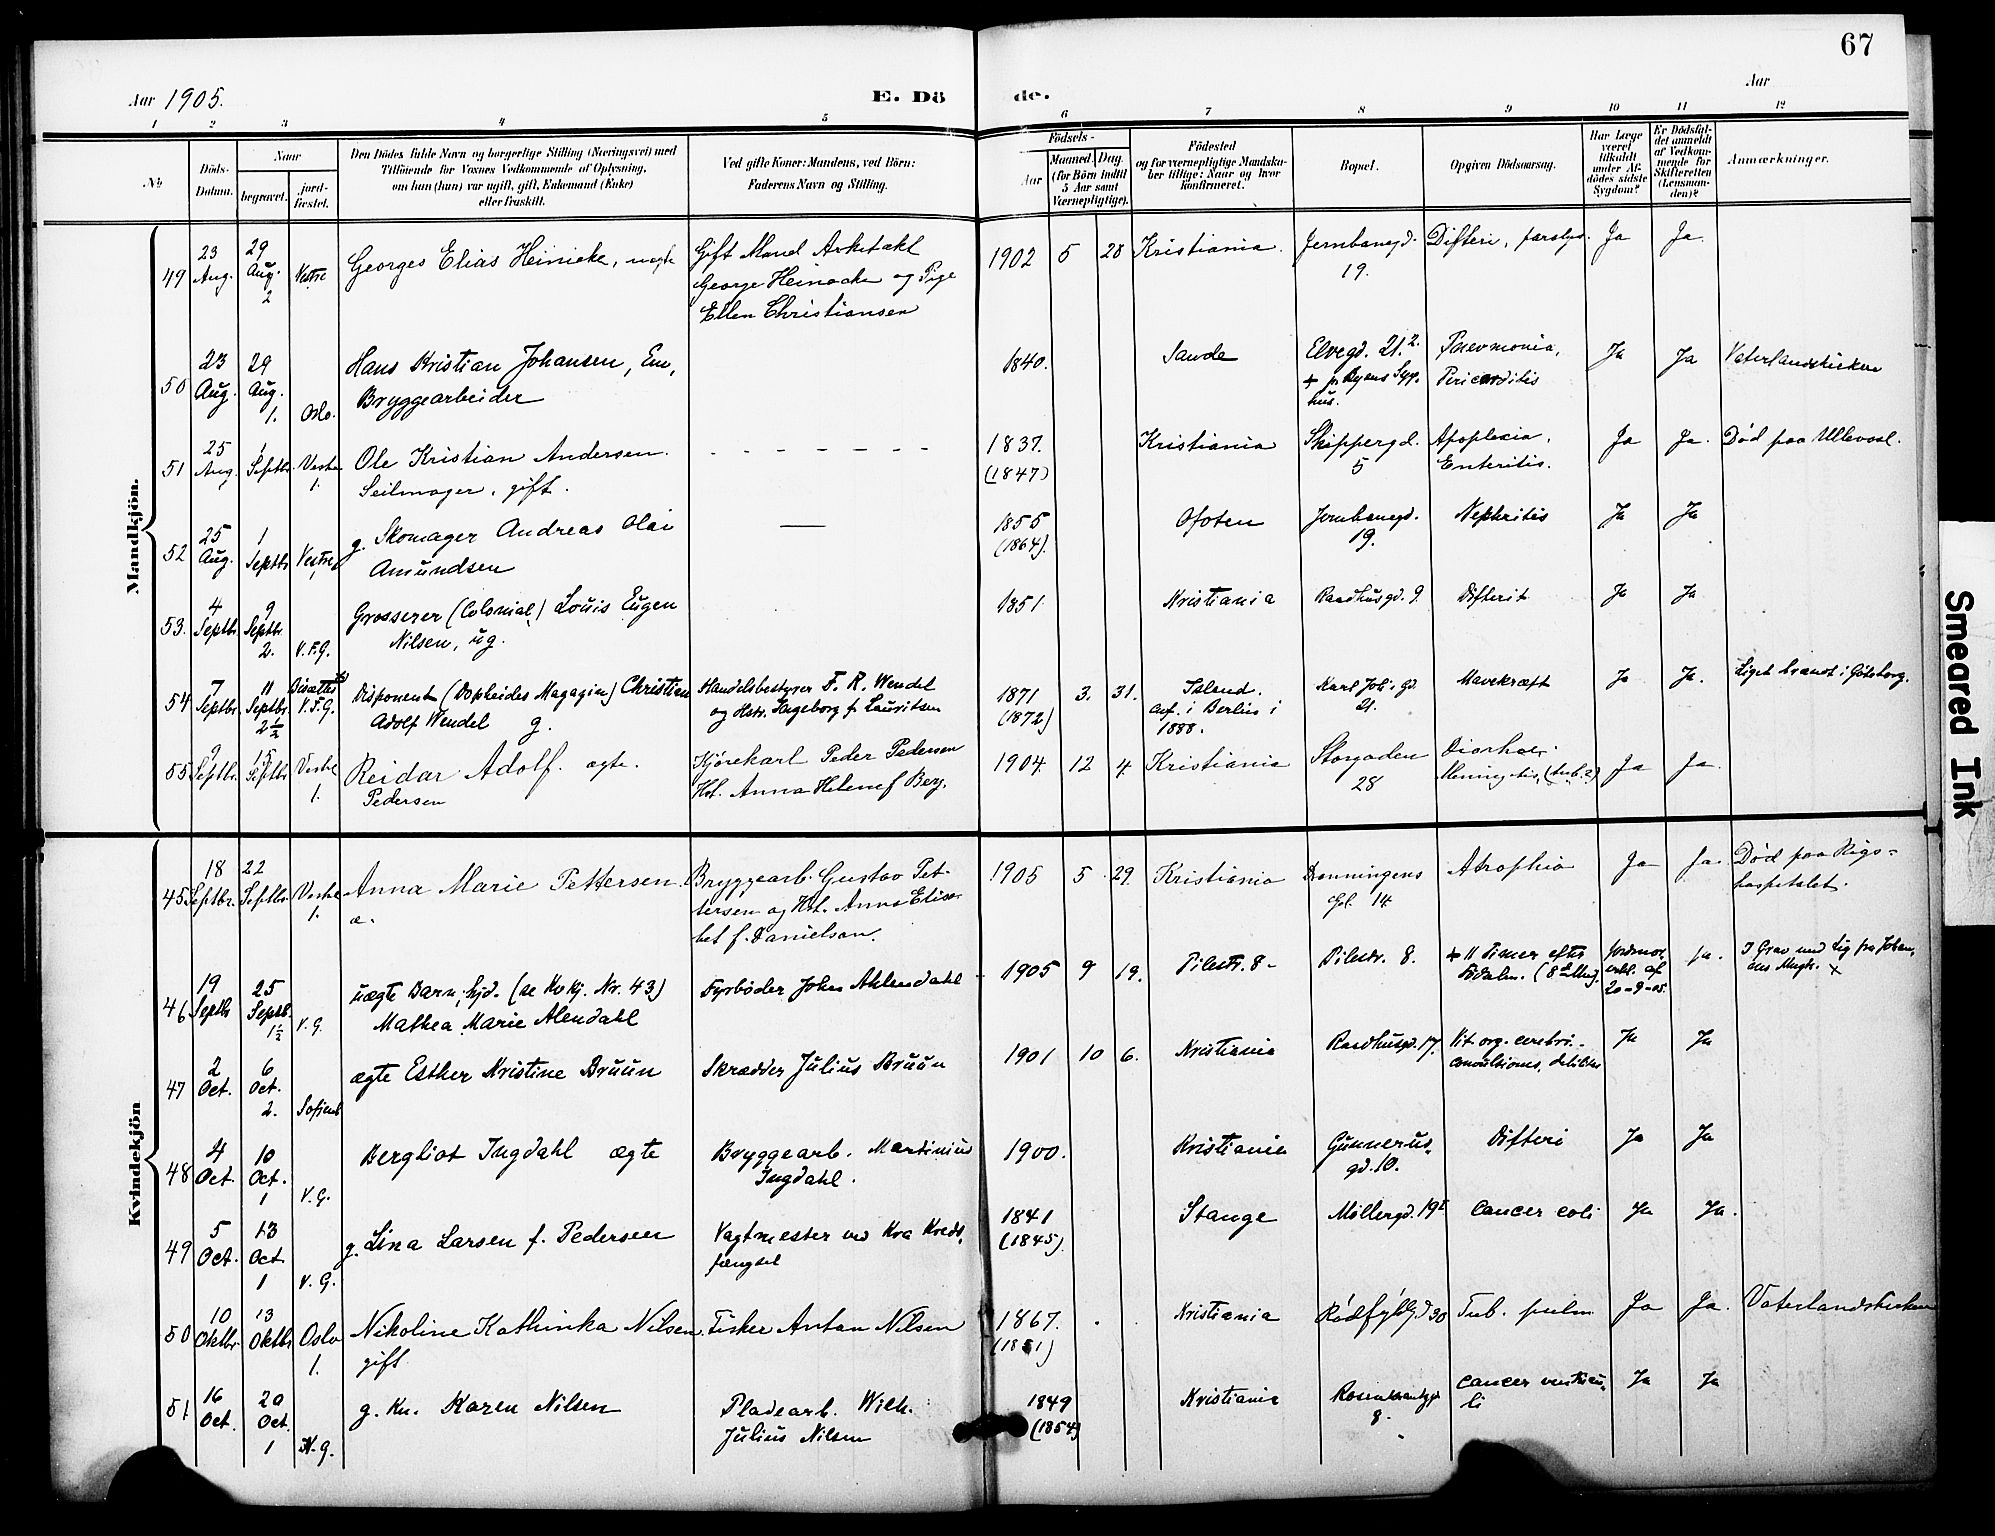 67
Aar 1905.
E. Dö de.
Aar
1 2 3 4 5 6 7 8 9 10 11 12
No
Döds-Datum.
Naar
begravet.
jord-fæstet.
Den Dödes fulde Navn og borgerlige Stilling (Næringsvei) med
Tilföiende for Voxnes Vedkommende af Oplysning,
om han (hun) var ugift, gift, Enkemand (Enke)
eller fraskilt.
Ved gifte Koner: Mandens, ved Börn:
Faderens Navn og Stilling.
Födsels-
Aar
Maaned. Dag.
(for Börn indtil
5 Aar samt
Værnepligtige).
Födested
og for værnepligtige Mandskaber tillige: Naar og hvor
konfirmeret.
Bopæl.
Opgiven Dödsaarsag.
Har Læge
været
tilkaldt
under Afdödes sidste
Sygdom?
Er Dödsfaldet anmeldt
af Vedkommende for
Skifteretten
(Lensmanden)?
Anmærkninger.
Mandkjön.
49 23 Aug. 29 Aug. 2 Vestre Georges Elias Heinicke, uegte Gift Mand Arkitekt 1902 5 28 Kristiania. Jernbanegd. 19. Difteri, Ja Ja.
George Heinecke og Pige
Ellen Christiansen
50 23 Aug. 29 Aug. 1. Oslo. Hans Kristian Johansen, Em, 1840. Sande Elvegd. 21.2. Pnevmonia, Ja Ja Vaterlandskirken
Bryggearbeider + p. Byens Syghus. Pericarditis
51 25 Aug. 1 Septbr. Vestre 1. Ole Kristian Andersen. - - - - - - - 1837. (1847) Kristiania Skippergd. 5 Apoplexia, Ja Ja. Död paa Ullevaal.
Seilmager, gift. Enteritis.
52 25 Aug. 1 Septbr Vestre g. Skomager Andreas Olai — 1855 (1864). Ofoten Jernbanegd. 19. Nephritis Ja Ja
Amundsen
53. 4 Septbr. 9 Septbr. 2. V.F.G. Grosserer (Colonial.) Louis Eugen 1851 Kristiania Raadhusgd. 9. Difterit Ja Ja
Nilsen, ug.
54 7 Septbr. 11 Septbr. 2½ V.F.G. Disponent (Dopleides Magazin) Christian Handelsbestyrer F. R. Wendel 1871 (1872) 3. 31. Island. Karl Joh.s Gd. 21. Mavekræft Ja Ja. Liget brændt i Göteborg.
Adolf Wendel g. og Hstr. Ingeborg f. Lauritsen conf. i Berlin i 1888.
55 9 Septbr. 15 Septbr Vestre 1. Reidar Adolf. ægte. Kjörekarl Peder Pedersen 1904. 12 4. Kristiania Storgaden 28 Ja Ja.
Pedersen Hst. Anna Helene f Berg.
Kvindekjön
45 18 Septbr. 22 Septbr. Vestre 1. Anna Marie Pettersen. Bryggearb. Gustav Pet- 1905 5 29. Kristiania Dronningens Gd. 14 Atrophia Ja Ja. Död paa Rigs-
æ. tersen og Hst. Anna Elisa- hospitalet.
bet f. Danielson.
46 19 Septbr 25 Septb. 1½ V.G. uægte Barn, hjd. (se Kvkj. Nr. 43) Fyrböder Johan Ahlendahl 1905 9 19. Pilestr. 8- Pilestr. 8. + 11 Timer efter Födselen. Jordmor erkl. af 20-9-05. Ja. I Grav med Lig fra
Mathea Marie Alendahl
47 2 Oct. 6 Oct. 2. Sofienb ægte Esther Kristine Bruun Skrædder Julius Bruun 1901 10 6. Kristiania Raadhusgd. 17. Vit. org. cerebri. Ja Ja
48 4 Oct. 10 Oct. 1 V.G. Bergliot Ingdahl ægte Bryggearb. Martinius 1900. Kristiania Gunnerus- gd. 10. Difteri Ja Ja
Ingdahl.
49 5 Oct. 13 Oct 1 V.G. g. Lina Larsen f. Pedersen Vagtmester ved Kra Kreds- 1841 (1845). Stange Möllergd. 19 Cancer coli Ja Ja.
fængsel
50 10 Oktbr. 13 Oktbr Oslo 1. Nikoline Kathinka Nilsen. Fisker Anton Nilsen 1867. (1851) Kristiania Rödfyldgd 30 Tub. pulm Ja Ja. Vaterlandskirken
gift
51 16 Oct. 20 Oct. 1 N.G. g. Kn. Karen Nilsen Pladearb. Wilh. 1849 (1854) Kristiania Rosenkrantzgd 8. Cancer ventricu- li Ja Ja
Julius Nilsen
Smeared Ink